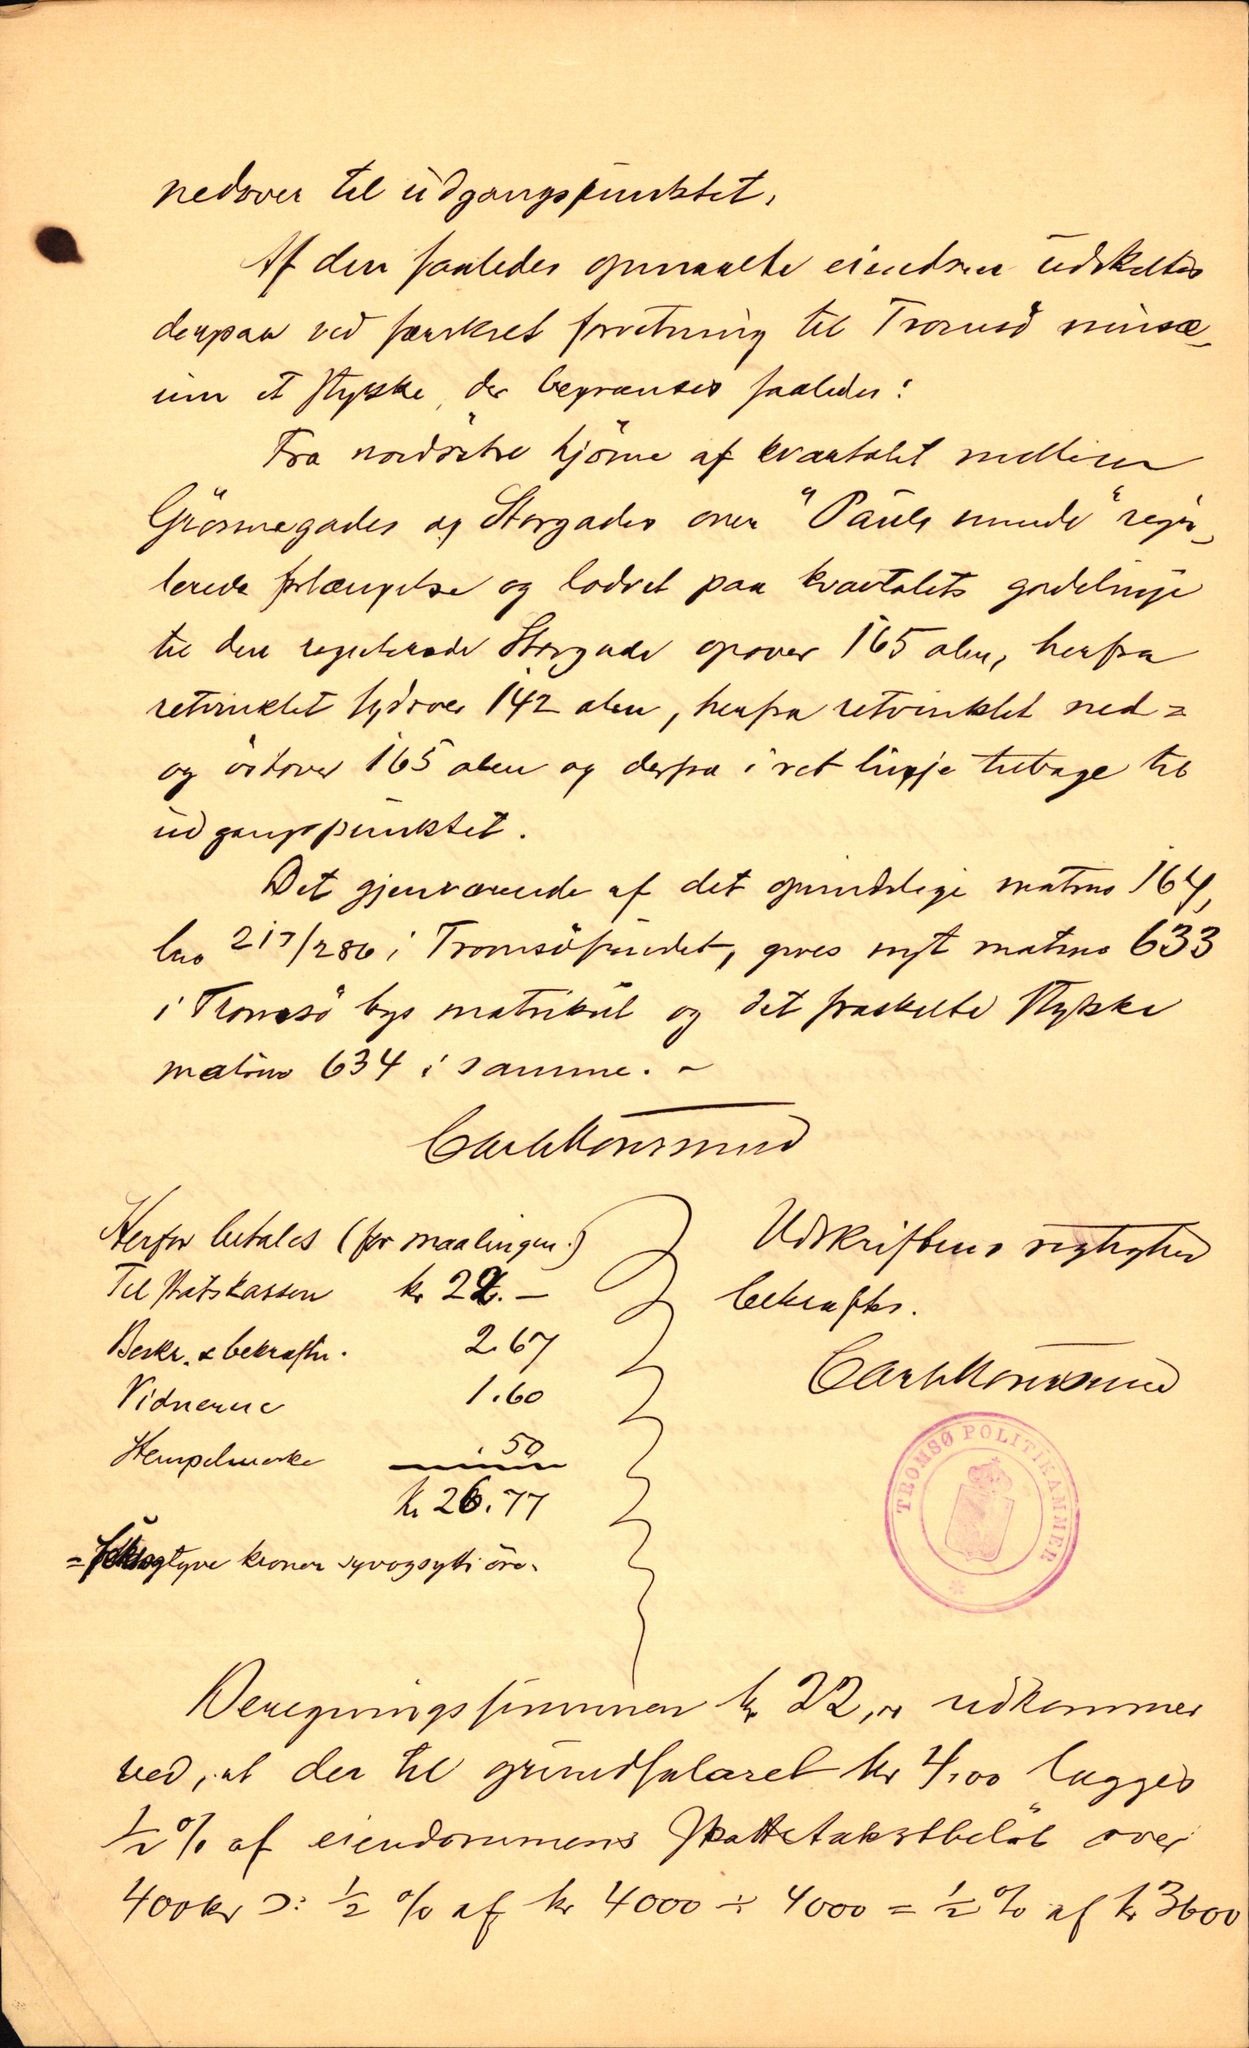 nedover til udgangspunktet.
Af den saaledes opmaalte eiendom udskiltes
derpaa ved særskilt forretning til Tromsø musæ-
um et stykke, der begrænses saaledes:
Fra nordöstre hjörne af kvartalet mellem
Grönnegades og Storgades over "Pauls minde" regu-
lerede forlængelse og lodret paa kvartalets gadelinje
til den regulerede Storgade opover 165 alen, herfra
retvinklet sydover 142 alen, herfra retvinklet ned=
og östover 165 alen og derfra i ret linje tilbage til
udgangspunktet.
Det gjenværende af det oprindelige matrno 164,
lno 217/286 i Tromsösundet, gives nyt matrno 633
i Tromsö bys matrikul og det fraskilte stykke
matrno 634 i samme. -
Herfor betales (for maalingen.)
Til statskassen kr 22. —
Beskr. & bekræftn. 2.67
Vidnerne 1.60
Stempelmerke . 50
kr 26.77
= seksogtyve kroner syvogsytti öre.
Udskriftens rigtighed
bekræftes.
TROMSØ POLITIKAMMER
Beregningssummen kr 22,00 udkommer
ved, at der til grundsalaret kr 4,00 lægges
½ % af eiendommens skattetakstbelöb over
400 kr ɔ: ½ % af kr 4000 ÷ 4000 = ½ % af kr 3600